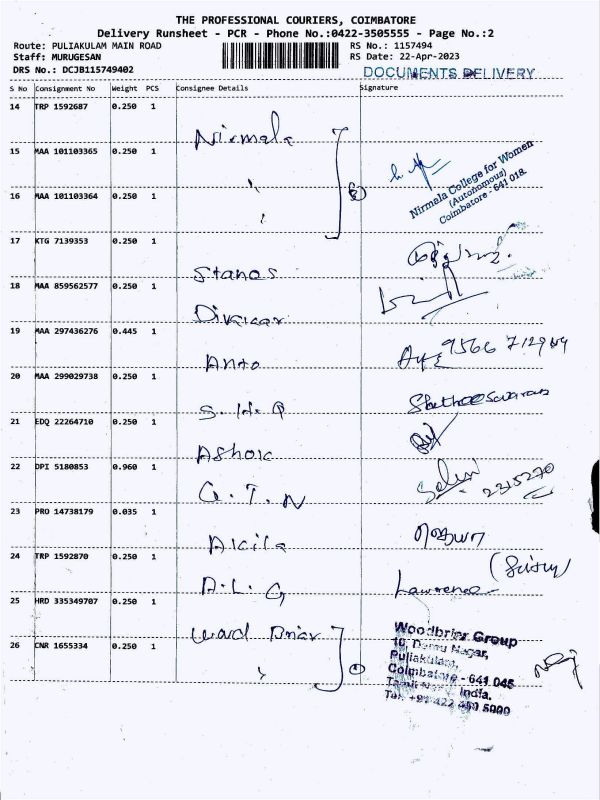 THE PROFESSIONAL COURIERS, COIMBATORE
Delivery Runsheet - PCR - Phone No.:0422-3505555 - Page No.:2
Route: PULIAKULAM MAIN ROAD RS No.: 1157494
Staff: MURUGESAN RS Date: 22-Apr-2023
DRS No.: DCJB115749402 DOCUMENTS DELIVERY
S No Consignment No Weight PCS Consignee Details Signature
14 TRP 1592687 0.250 1 Nirmala
15 MAA 101103365 0.250 1 "
Nirmala College for Women
(Autonomous)
Coimbatore - 641 018.
16 MAA 101103364 0.250 1
17 KTG 7139353 0.250 1 Stanes
18 MAA 859562577 0.250 1 Divakar
19 MAA 297436276 0.445 1 Anto
20 MAA 299029738 0.250 1 S.H.Q
21 EDQ 22264710 0.250 1 Ashok
22 DPI 5180853 0.960 1 G.T.N 2315270
23 PRO 14738179 0.035 1 Akila
24 TRP 1592870 0.250 1 A.L.G Lawrence
25 HRD 335349707 0.250 1 Wood Briar
26 CNR 1655334 0.250 1
Woodbriar Group
Puliakulam,
Coimbatore - 641 045
India.